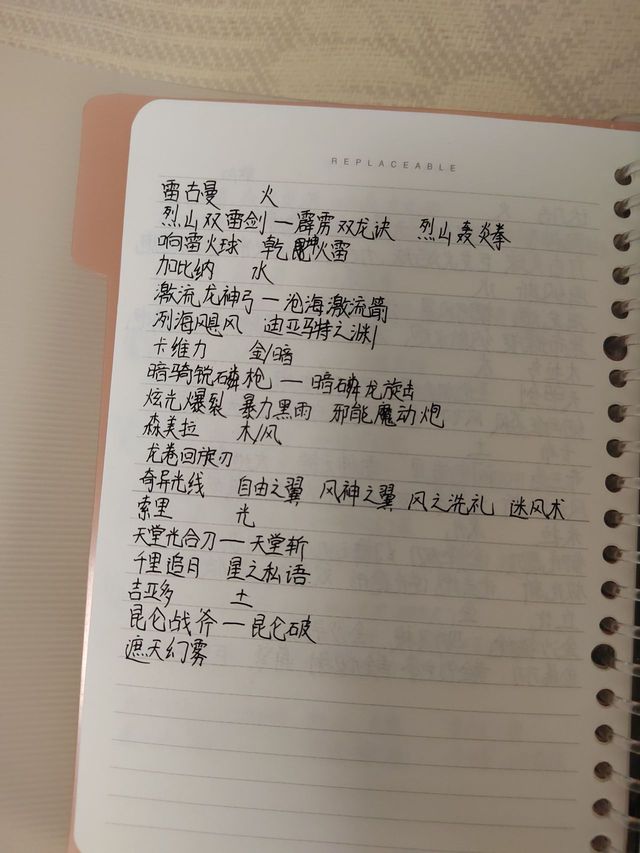 REPLACEABLE
雷古曼 火
烈山双雷剑—霹雳双龙诀 烈山轰炎拳
响雷火球 乾坤火雷
加比纳 水
激流龙神弓—沧海激流箭
冽海飓风 迪亚特之渊
卡维力 金/暗
暗骑锐磷枪—暗磷龙旋击
炫光爆裂 暴力黑雨 邪能魔动炮
森美拉 木/风
龙卷回旋刃
奇异光线 自由之翼 风神之翼 风之洗礼 迷风术
索里 光
天堂光合刀—天堂斩
千里追月 星之私语
吉亚多 土
昆仑战斧—昆仑破
遮天幻雾